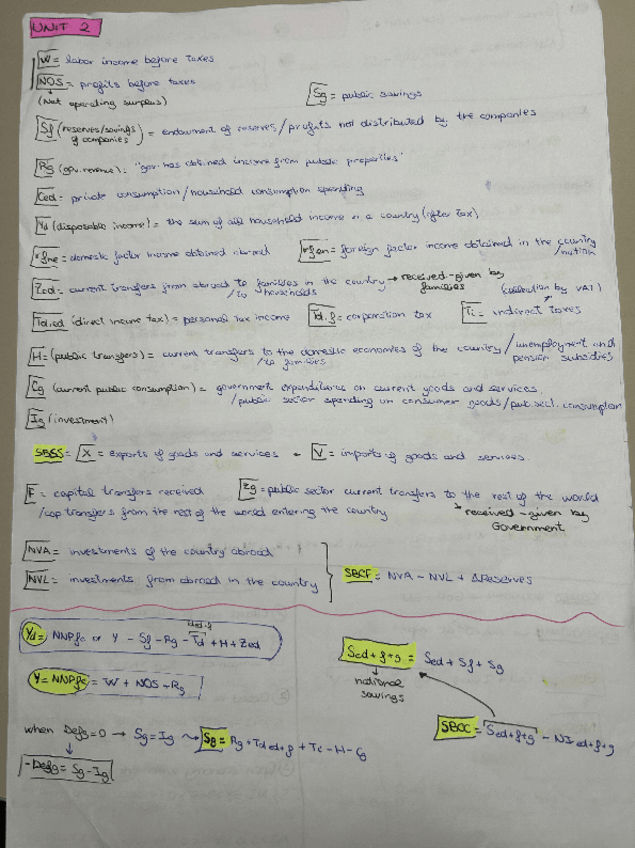 UNIT 2
W = labor income before taxes
NOS = profits before taxes
(Net operating surplus)
Sg = public savings
Sf (reserves/savings of companies) = endowment of reserves/profits not distributed by the companies
Rg (gov. revenue) = "gov. has obtained income from public properties"
Ced = private consumption/household consumption spending
Yd (disposable income) = the sum of all household income in a country (after tax)
rfne = domestic factor income obtained abroad
rfen = foreign factor income obtained in the country
/nation
Zed = current transfers from abroad to families in the country → received-given by
/to households
families
(collection by VAT)
Td.ed (direct income tax) = personal tax income
Td.f = corporation tax
Ti = indirect taxes
H = (public transfers) = current transfers to the domestic economies of the country/unemployment and
/to families
pension subsidies
Cg (current public consumption) = government expenditures on current goods and services.
/public sector spending on consumer goods/pub.sect. consumption
Ig (investment)
SBGS = X = exports of goods and services - V = imports of goods and services.
F = capital transfers received
/cap transfers from the rest of the world entering the country
Zg = public sector current transfers to the rest of the world
received-given by
Government
NVA = investments of the country abroad
NVL = investments from abroad in the country
SBCF = NVA - NVL + ΔReserves
Yd = NNPfc or Y - Sf - Rg - Td + H + Zed
Y = NNPfc = W + NOS + Rg
Sed+f+g = Sed + Sf + Sg
national
savings
SBOC = Sed+f+g - NI ed+f+g
when Defg = 0 → Sg = Ig
Sg = Rg + Td ed+f + Ti - H - Cg
-Defg = Sg - Ig